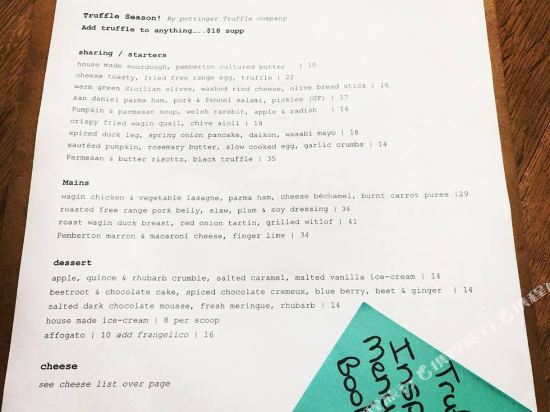 Truffle Season! By pottinger Truffle company
Add truffle to anything....$18 supp
sharing / starters
house made sourdough, pemberton cultured butter | 10
cheese toasty, fried free range egg, truffle | 22
warm green Sicilian olives, washed rind cheese, olive bread stick | 16
san daniel parma ham, pork & fennel salami, pickles (GF) | 17
Pumpkin & parmesan soup, welsh rarebit, apple & radish | 14
crispy fried wagin quail, chive aioli | 19
spiced duck leg, spring onion pancake, daikon, wasabi mayo | 18
sautéed pumpkin, rosemary butter, slow cooked egg, garlic crumbs | 14
Parmesan & butter risotto, black truffle | 35
Mains
wagin chicken & vegetable lasagne, parma ham, cheese béchamel, burnt carrot puree |29
roasted free range pork belly, slaw, plum & soy dressing | 36
roast wagin duck breast, red onion tartin, grilled witlof | 41
Pemberton marron & macaroni cheese, finger lime | 34
dessert
apple, quince & rhubarb crumble, salted caramel, malted vanilla ice-cream | 14
beetroot & chocolate cake, spiced chocolate cremeux, blue berry, beet & ginger | 14
salted dark chocolate mousse, fresh meringue, rhubarb | 14
house made ice-cream | 8 per scoop
affogato | 10 add frangelico | 16
cheese
see cheese list over page
Tru
Insp
Menu
Boo
携程旅行
携程